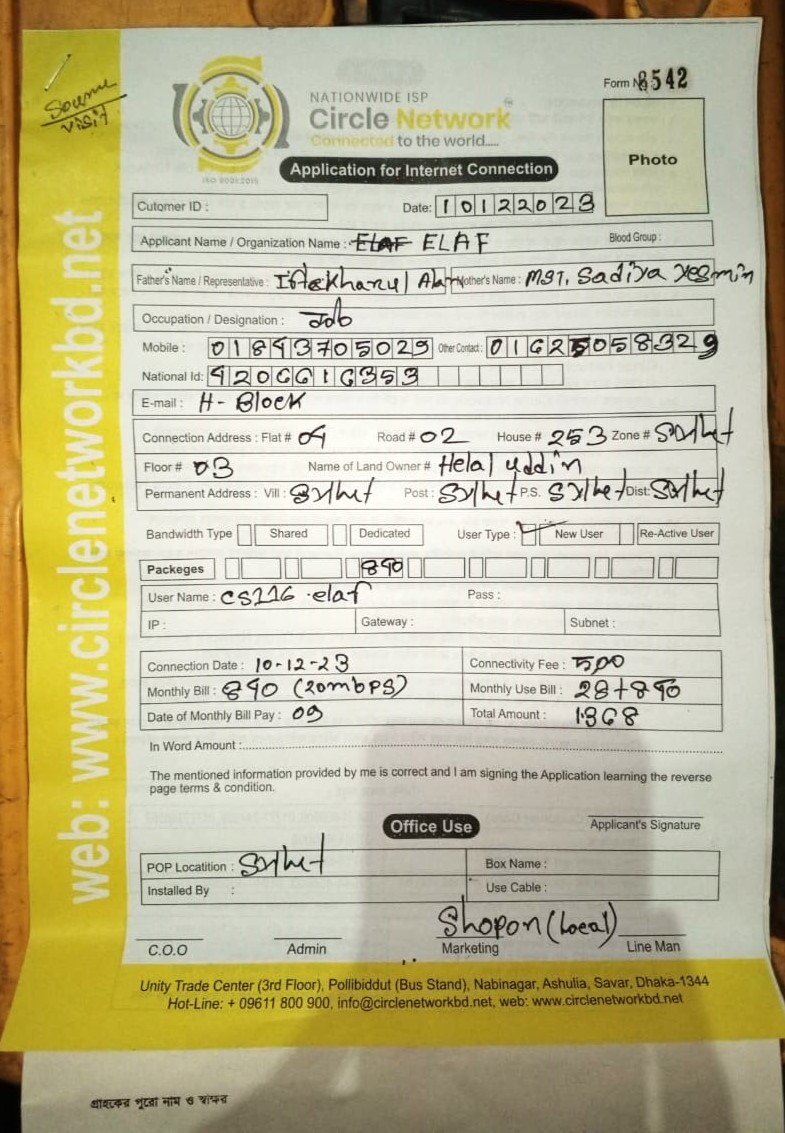 Source
visit
NATIONWIDE ISP
Circle Network
Connected to the world.....
ISO 9001:2015
Application for Internet Connection
Form No 8542
Photo
Cutomer ID :
Date: 10122023
Applicant Name / Organization Name : ELAF
Blood Group :
Father's Name / Representative : Mother's Name : MST. Sadiya Yesmin
Occupation / Designation : Job
Mobile : Other Contact :
National Id:
E-mail : H-Block
Connection Address : Flat # 04 Road # 02 House # 253 Zone #
Floor # 03 Name of Land Owner # Helal Uddin
Permanent Address : Vill : Post : P.S. Dist:
Bandwidth Type Shared Dedicated User Type : New User Re-Active User
Packeges 890
User Name : CS116.elaf Pass :
IP : Gateway : Subnet :
Connection Date : 10-12-23 Connectivity Fee : 500
Monthly Bill : 890 (20mbPS) Monthly Use Bill :
Date of Monthly Bill Pay : 09 Total Amount : 1368
In Word Amount :
The mentioned information provided by me is correct and I am signing the Application learning the reverse
page terms & condition.
Office Use
Applicant's Signature
POP Locatition : Box Name :
Installed By : Use Cable :
Shopon (Local)
C.O.O Admin Marketing Line Man
Unity Trade Center (3rd Floor), Pollibiddut (Bus Stand), Nabinagar, Ashulia, Savar, Dhaka-1344
Hot-Line: + 09611 800 900, info@circlenetworkbd.net, web: www.circlenetworkbd.net
web: www.circlenetworkbd.net
গ্রাহকের পুরো নাম ও স্বাক্ষর